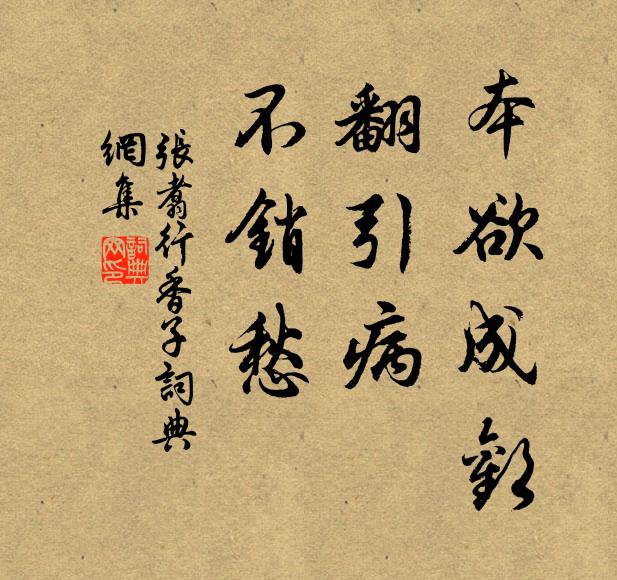 本欲成歡
翻引病
不銷愁
張翥行香子詞典
網集
詞典網印